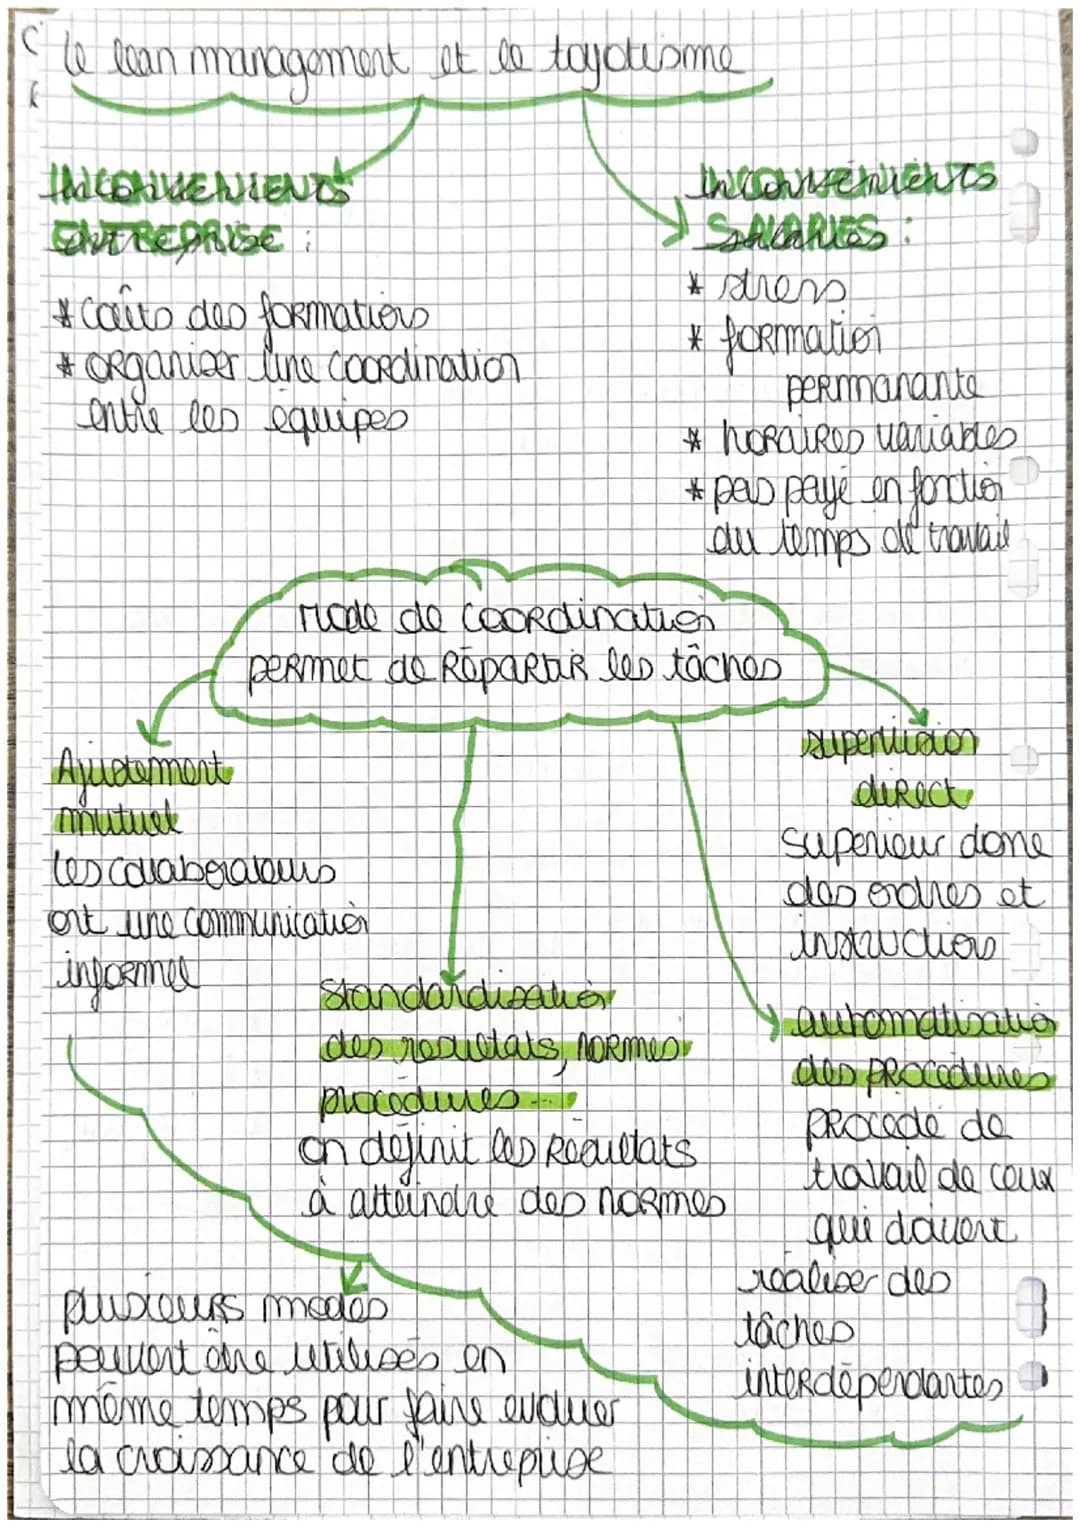 Le lean management et le toyotisme
INCONVÉNIENTS
ENTREPRISE :
* coûts des formations
* organiser une coordination
entre les équipes
INCONVÉNIENTS
SALARIÉS :
* stress
* formation
permanante
* horaires variables
* pas payé en fonction
du temps de travail
mode de coordination
permet de répartir les tâches
Ajustement
mutuel
les collaborateurs
ont une communication
informel
standardisation
des resultats, normes
procédures ...
on définit les résultats
à atteindre des normes
supervision
direct
superieur donne
des ordres et
instructions
automatisation
des procédures
procédé de
travail de ceux
qui doivent
réaliser des
tâches
interdépendantes
plusieurs modes
peuvent être utilisés en
même temps pour faire evoluer
la croissance de l'entreprise